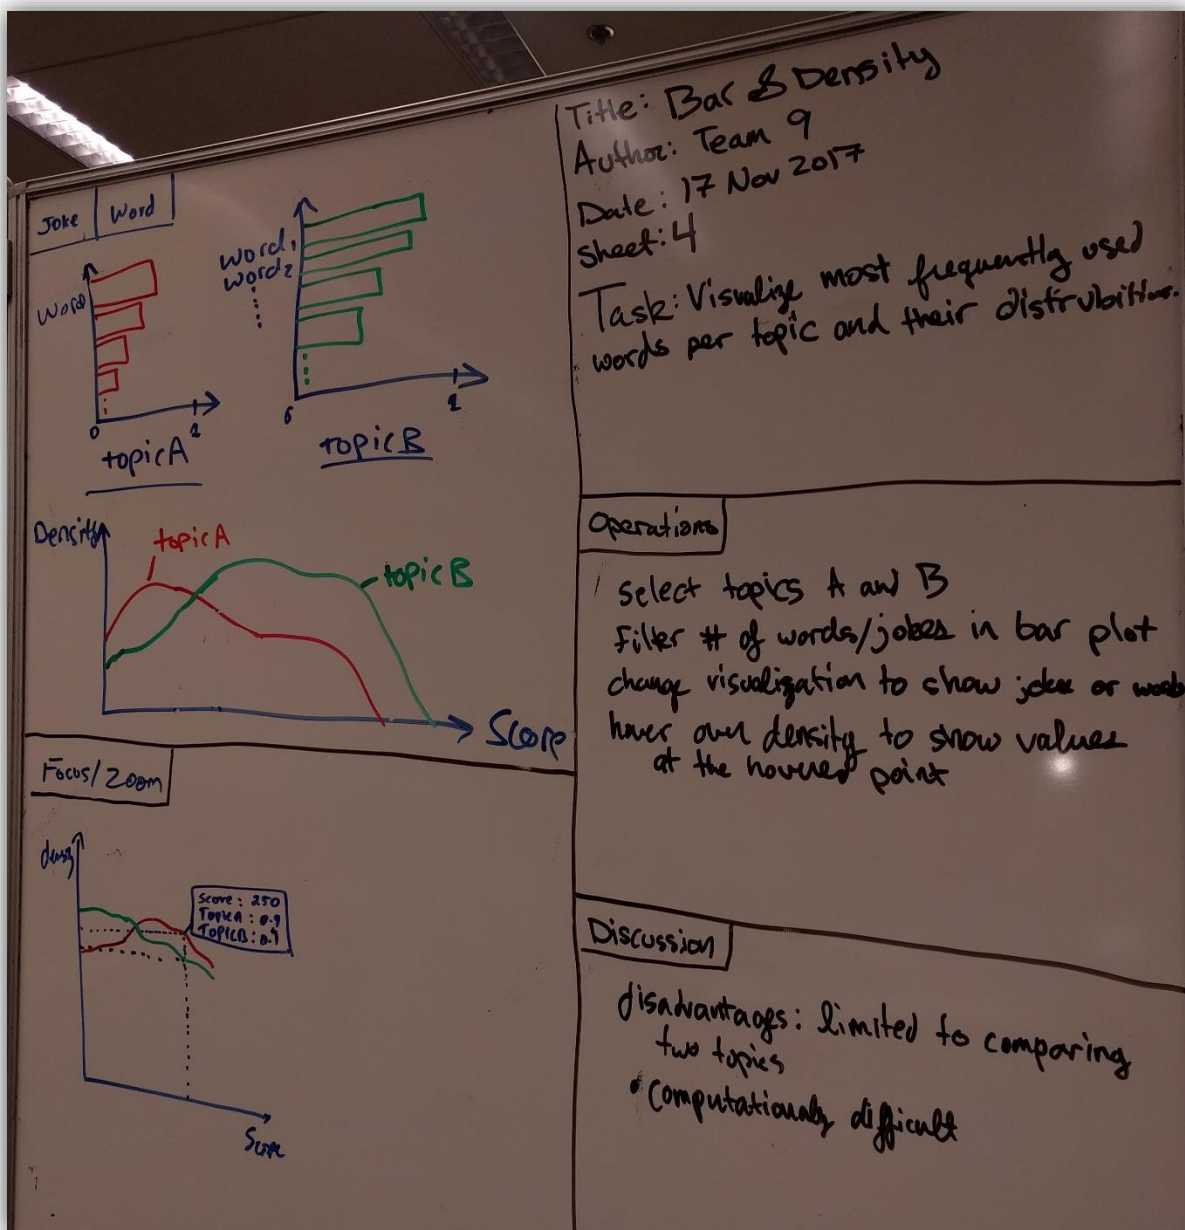 Joke Word
word
0
topic A
word1
word2
topic B
Density
topic A
topic B
Score
Focus/Zoom
Score: 250
Topic A: 0.9
Score
Title: Bar & Density
Author: Team 9
Date: 17 Nov 2017
sheet: 4
Task: Visualize most frequently used
words per topic and their
Operations
select topics A and B
Filter # of words/jokes in bar plot
change visualization to show jokes or
hover over density to show values
at the hovered point
Discussion
disadvantages: limited to comparing
two topics
• computationaly difficult